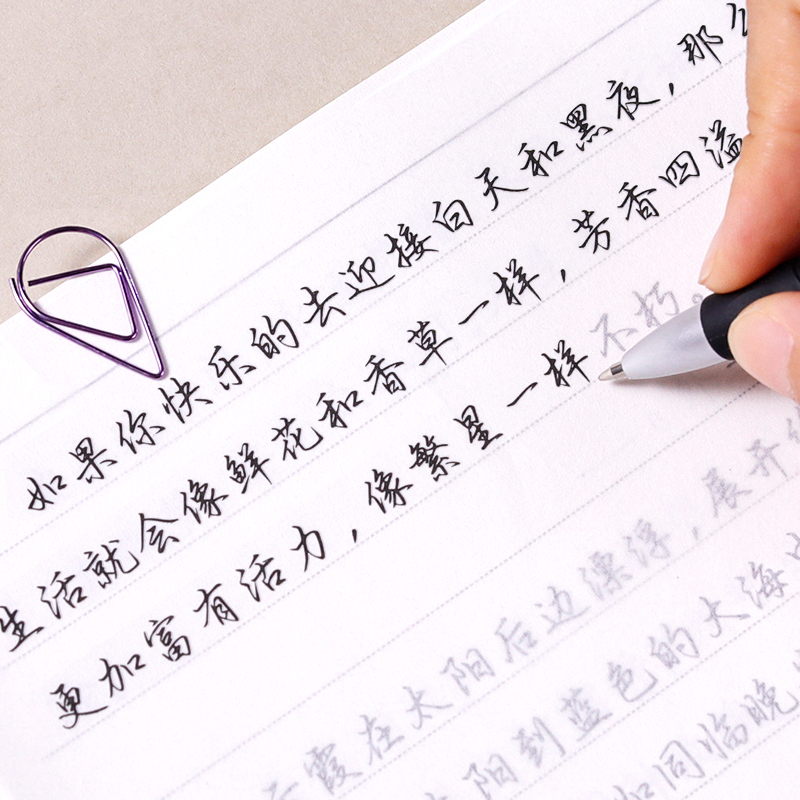 如果你快乐的去迎接白天和黑夜，那么
生活就会像鲜花和香草一样，芳香四溢
更加富有活力，像繁星一样不朽。
霞在太阳后边漂浮，展开
阳到蓝色的大海中
如同临晚